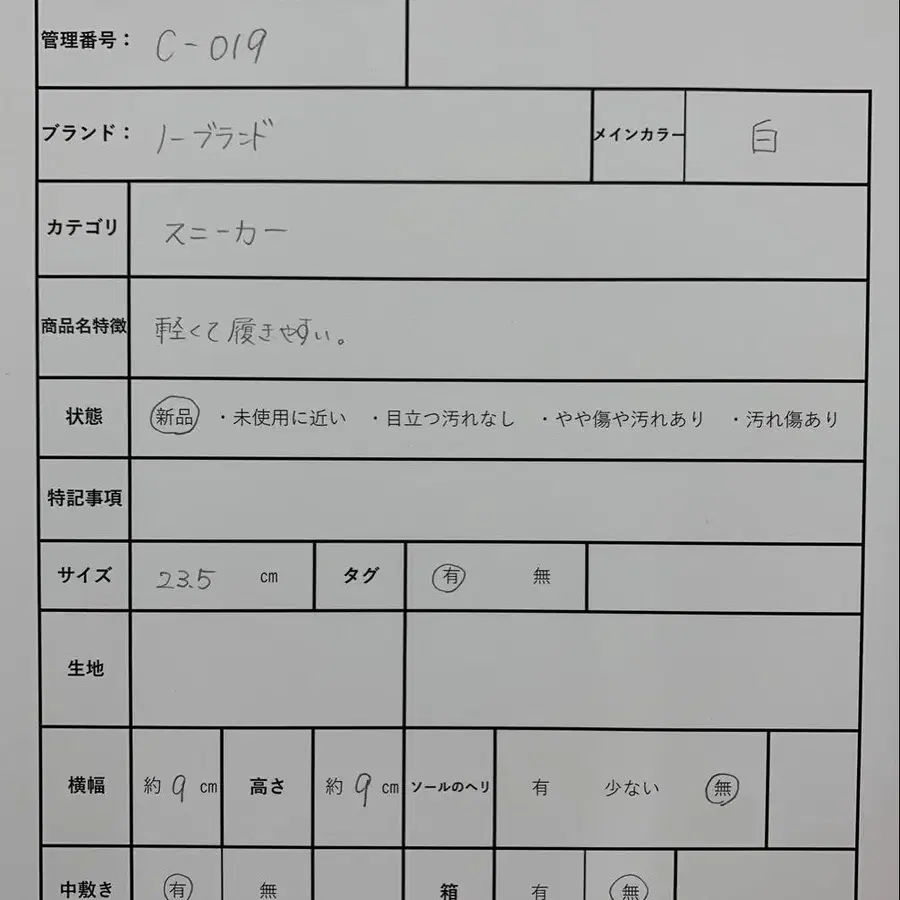 管理番号： C-019
ブランド： ノーブランド メインカラー 白
カテゴリ スニーカー
商品名特徴 軽くて履きやすい。
状態 新品 ・未使用に近い ・目立つ汚れなし ・やや傷や汚れあり ・汚れ傷あり
特記事項
サイズ 23.5 cm タグ 有 無
生地
横幅 約 9 cm 高さ 約 9 cm ソールのヘリ 有 少ない 無
中敷き 有 無 箱 有 無